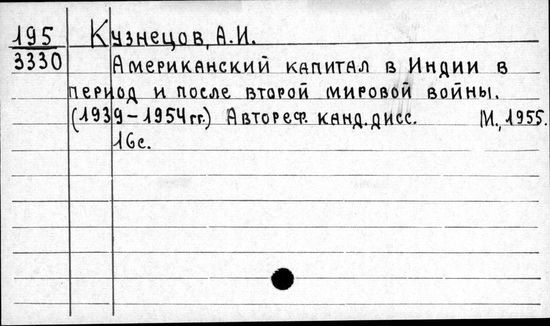 195 Кузнецов, А.И.
3330 Американский капитал в Индии в
период и после второй мировой войны.
(1939-1954 гг.) Автореф. канд. дисс. М., 1955.
16с.